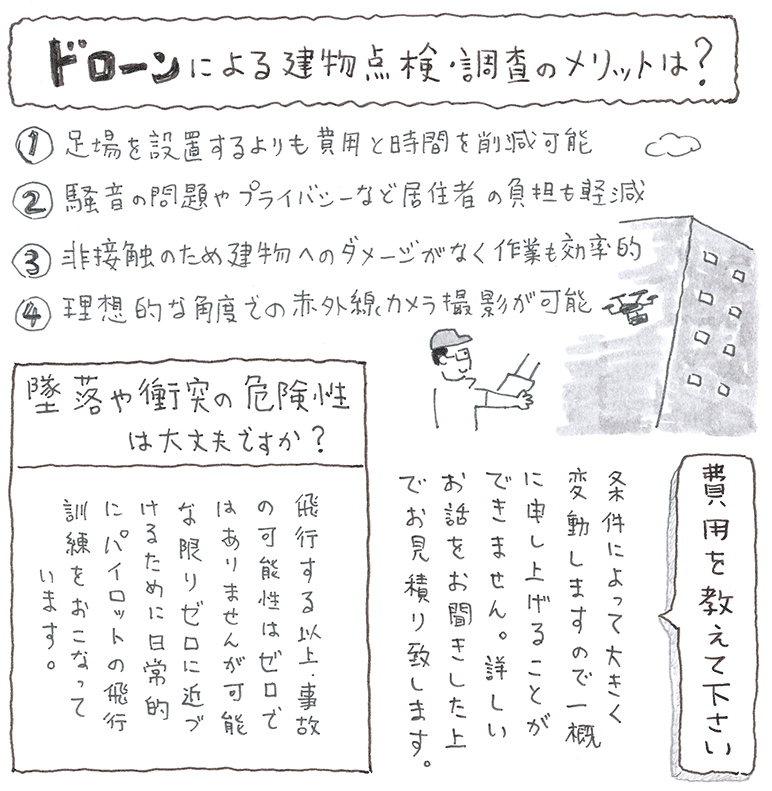 ドローンによる建物点検・調査のメリットは?
① 足場を設置するよりも費用と時間を削減可能
② 騒音の問題やプライバシーなど居住者の負担も軽減
③ 非接触のため建物へのダメージがなく作業も効率的
④ 理想的な角度での赤外線カメラ撮影が可能
墜落や衝突の危険性
は大丈夫ですか?
飛行する以上、事故
の可能性はゼロで
はありませんが可能
な限りゼロに近づ
けるために日常的
にパイロットの飛行
訓練をおこなって
います。
費用を教えて下さい
条件によって大きく
変動しますので一概
に申し上げることが
できません。詳しい
お話をお聞きした上
でお見積り致します。